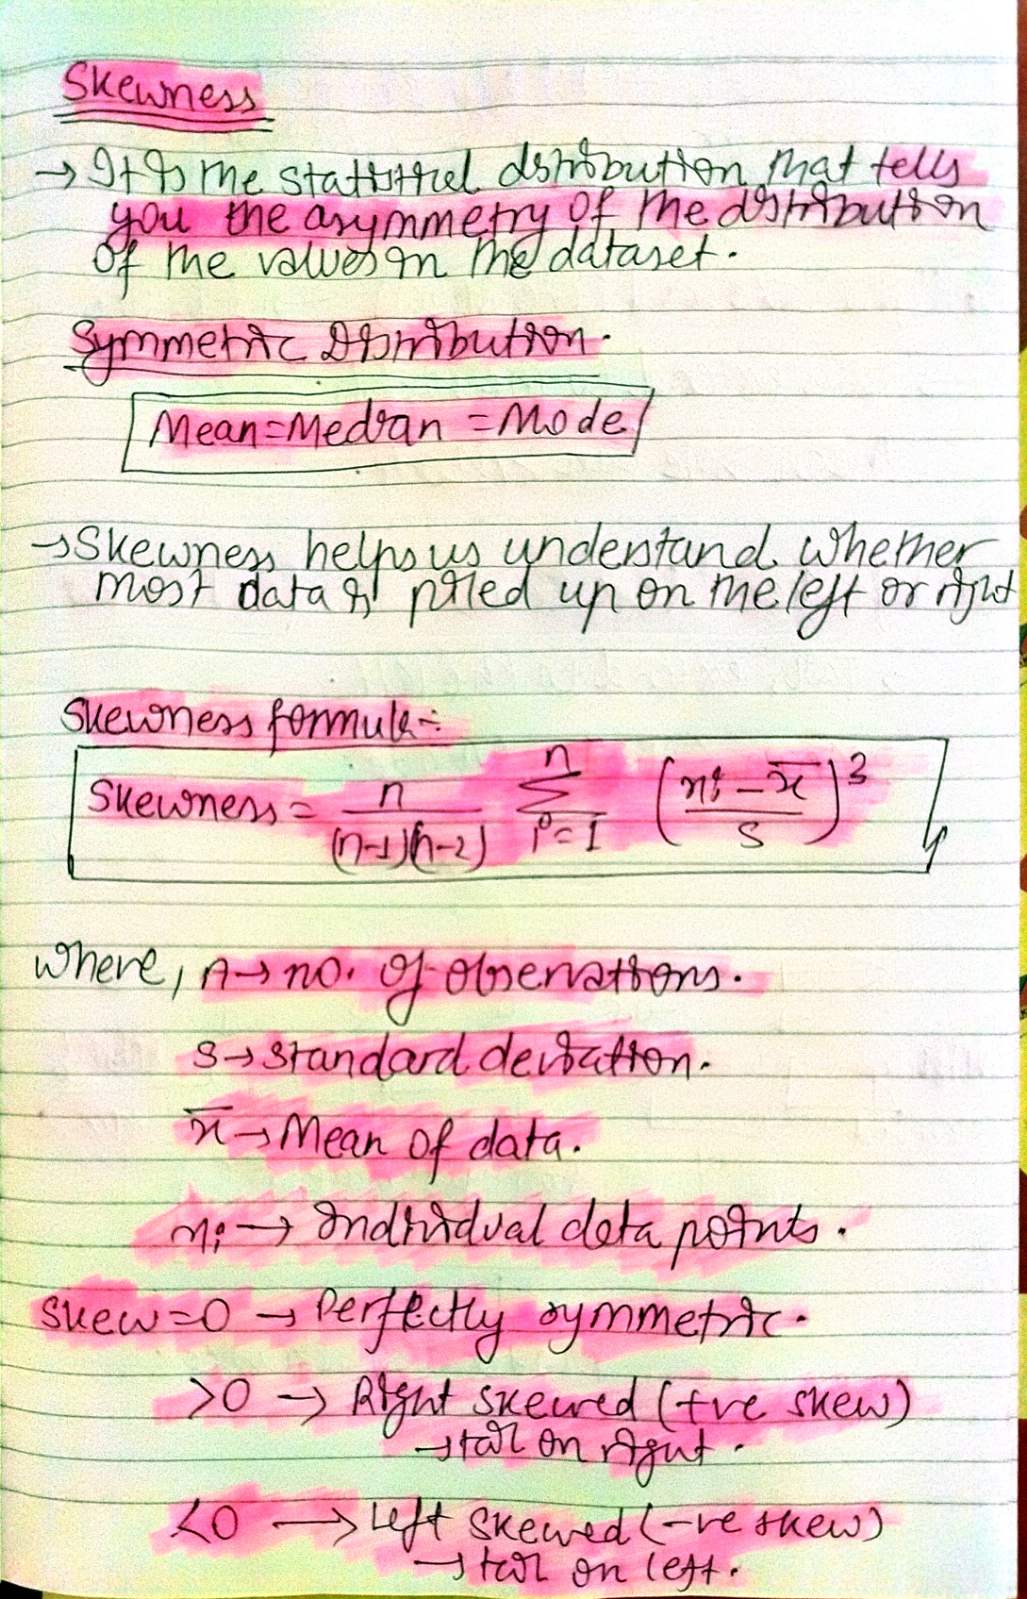 Skewness
→ It is the statistical distribution that tells
you the asymmetry of the distribution
of the values in the dataset.
Symmetric Distribution.
Mean=Median =Mode
→ Skewness helps us understand whether
most data is piled up on the left or right
Skewness formula:-
Skewness = n/(n-1)(n-2) n∑i=1 (xi - x̄/S)³
where, n → no. of observations.
S → standard deviation.
x̄ → Mean of data.
xi → Individual data points.
Skew=0 → Perfectly symmetric.
>0 → Right skewed (+ve skew)
→ tail on right.
<0 → Left skewed (-ve skew)
→ tail on left.